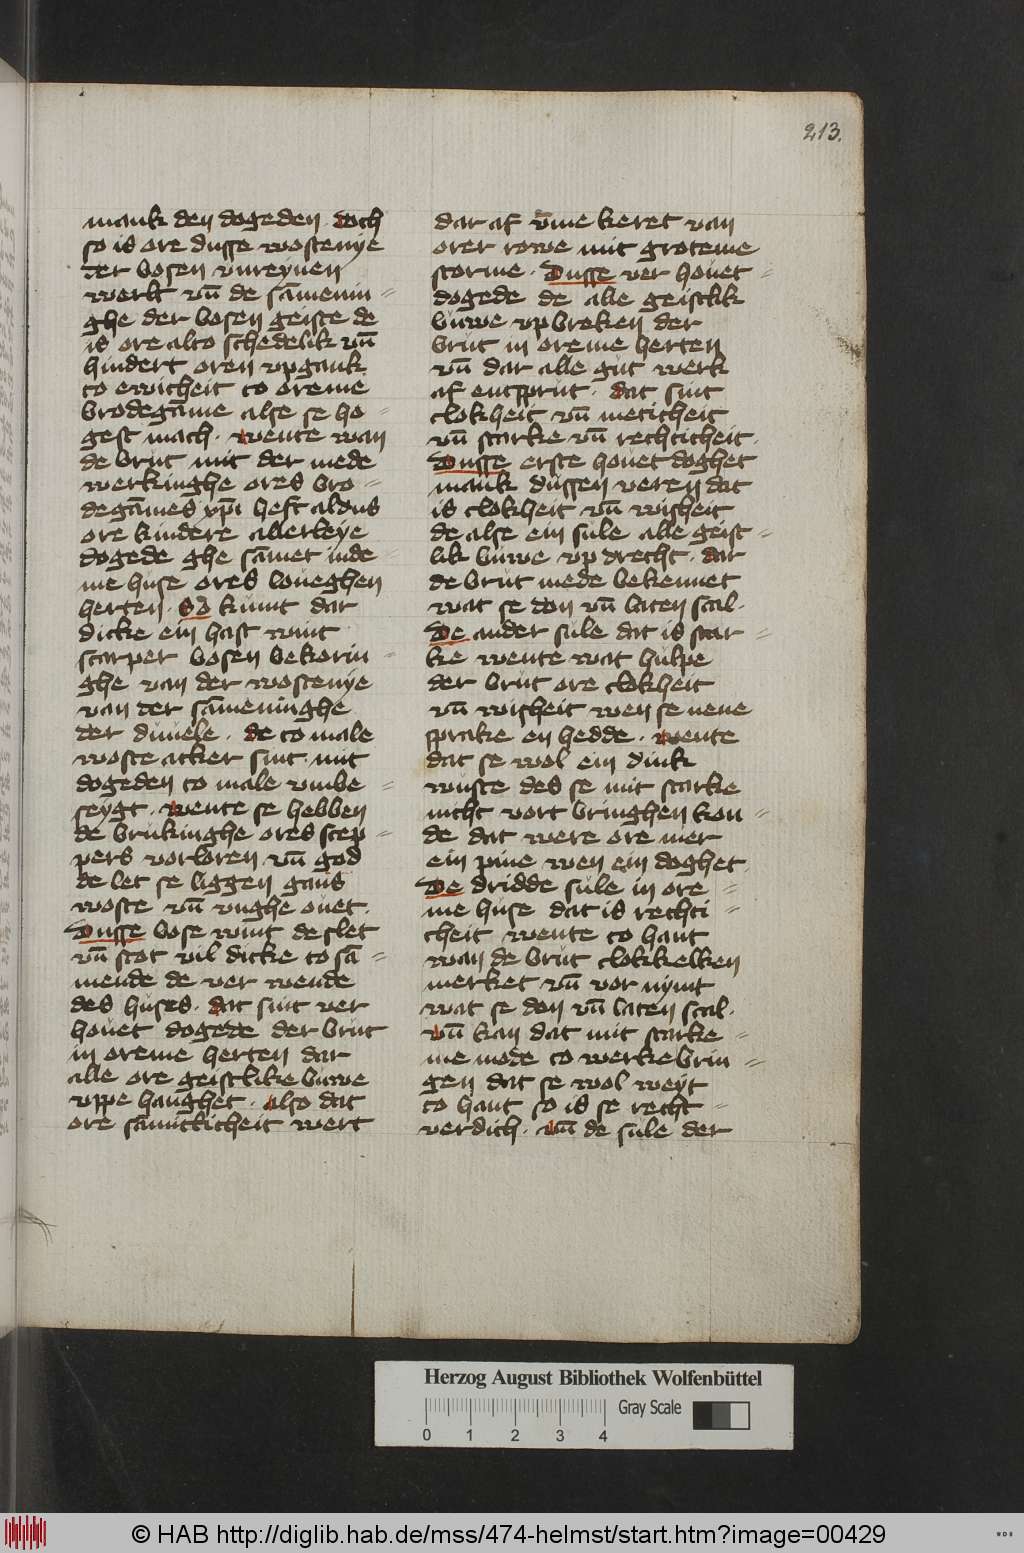 213.
mank den dogeden. doch
so is ore dusse wostenye
der bosen vnreynen
werlt vn̄ de sāmenin=
ghe der bosen geiste de
is ore alto schedelik vn̄
hindert oren vpgank
to ewicheit to oreme
brodegāme alse se ho=
gest mach. wente wan
de brůt mit der mede
werkinghe ores bro=
degāmes xp̄i heft aldus
ore kindere allerleye
dogede ghe sāmet inde=
me huse ores loueghen
herten. So kůmt dar
dicke ein hast wint
scarper bosen bekorin=
ghe van der wostenye
van der sāmeninghe
der duuele. de to male
woste acker sint mit
dogeden to male vmbe=
seygt. wente se hebben
de brukinghe ores scep=
pers vorloren vn̄ god
de let se liggen gans
woste vn̄ vnghe ouet.
Dusse bose wint de slet
vn̄ stot vil dicke to sā=
mende de ver wende
des huses. dat sint ver
houet dogede der brůt
in oreme herten dar
alle ore geistlike buwe
vppe hanghet. also dat
ore sāmitticheit wert
dar af v̄me keret van
orer rowe mit groteme
storme. Dusse ver houet=
dogede de alle geistlik
buwe vp broken der
brůt in oreme herten
vn̄ dar alle gůt werk
af entsprůt. dat sint
clokheit vn̄ meticheit
vn̄ starke vn̄ rechticheit.
Dusse erste houet doghet
mank dussen veren dat
is clokheit vn̄ wisheit
de alse ein sule alle geist=
lik buwe vp drecht. dar
de brůt mede bekennet
wat se don vn̄ laten scal.
De ander sule dat is star=
ke wente wat hůlpe
der brůt ore clokheit
vn̄ wisheit wen se nene
sprake en hedde. wente
dat se wol ein dink
wuste des se mit starke
nicht vort bringhen kon=
de dat were ore mer
ein pine wen ein doghet.
De dridde sule in ore=
me huse dat is rechti=
cheit wente to hant
wan de brůt clokkelken
merket vn̄ vor nymt
wat se don vn̄ laten scal.
vn̄ kan dat mit starke=
me mode to werke brin=
gen dat se wol weyt
to hant so is se recht=
verdich. vn̄ de sule der
Herzog August Bibliothek Wolfenbüttel
Gray Scale
0 1 2 3 4
© HAB http://diglib.hab.de/mss/474-helmst/start.htm?image=00429
WDB